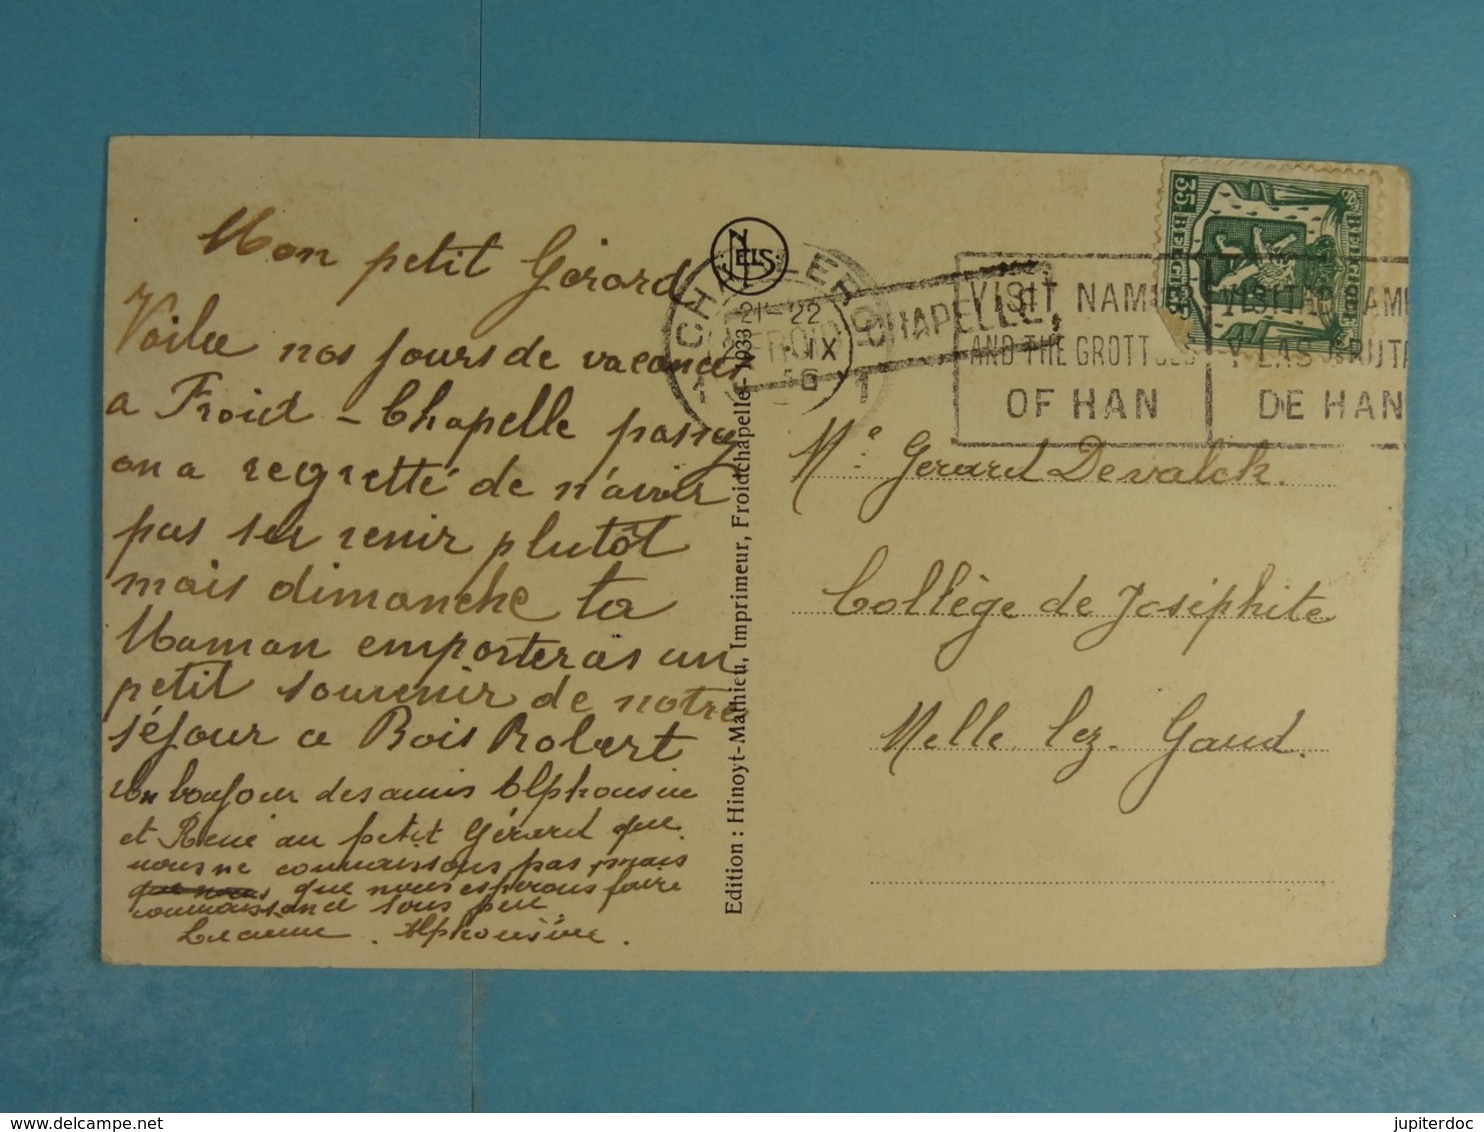 Mon petit Gérard
Voila nos jours de vacances
a Froid-Chapelle passez
on a regretté de n'avoir
pas su venir plutôt
mais dimanche ta
Maman emporteras un
petit souvenir de notre
séjour a Bois Robert
Un bonjour des amis Alphonsine
et René au petit Gérard que
nous ne connaissons pas, mais
que nous espérons faire
connaissance sous peu
Alphonsine.
NELS
Edition : Hinoyt-Mathieu, Imprimeur, Froidchapelle - 1933
CHATELET
1 1
21-22
IX
FROIDCHAPELLE
VISIT NAMUR
AND THE GROTTOES
OF HAN
VISITAD NAMU
Y LAS GRUTA
DE HAN
35 BELGIE
BELGIQUE
Mr Gerard Devalck.
Collège de Josiphite
Melle lez- Gand.
www.delcampe.net
jupiterdoc